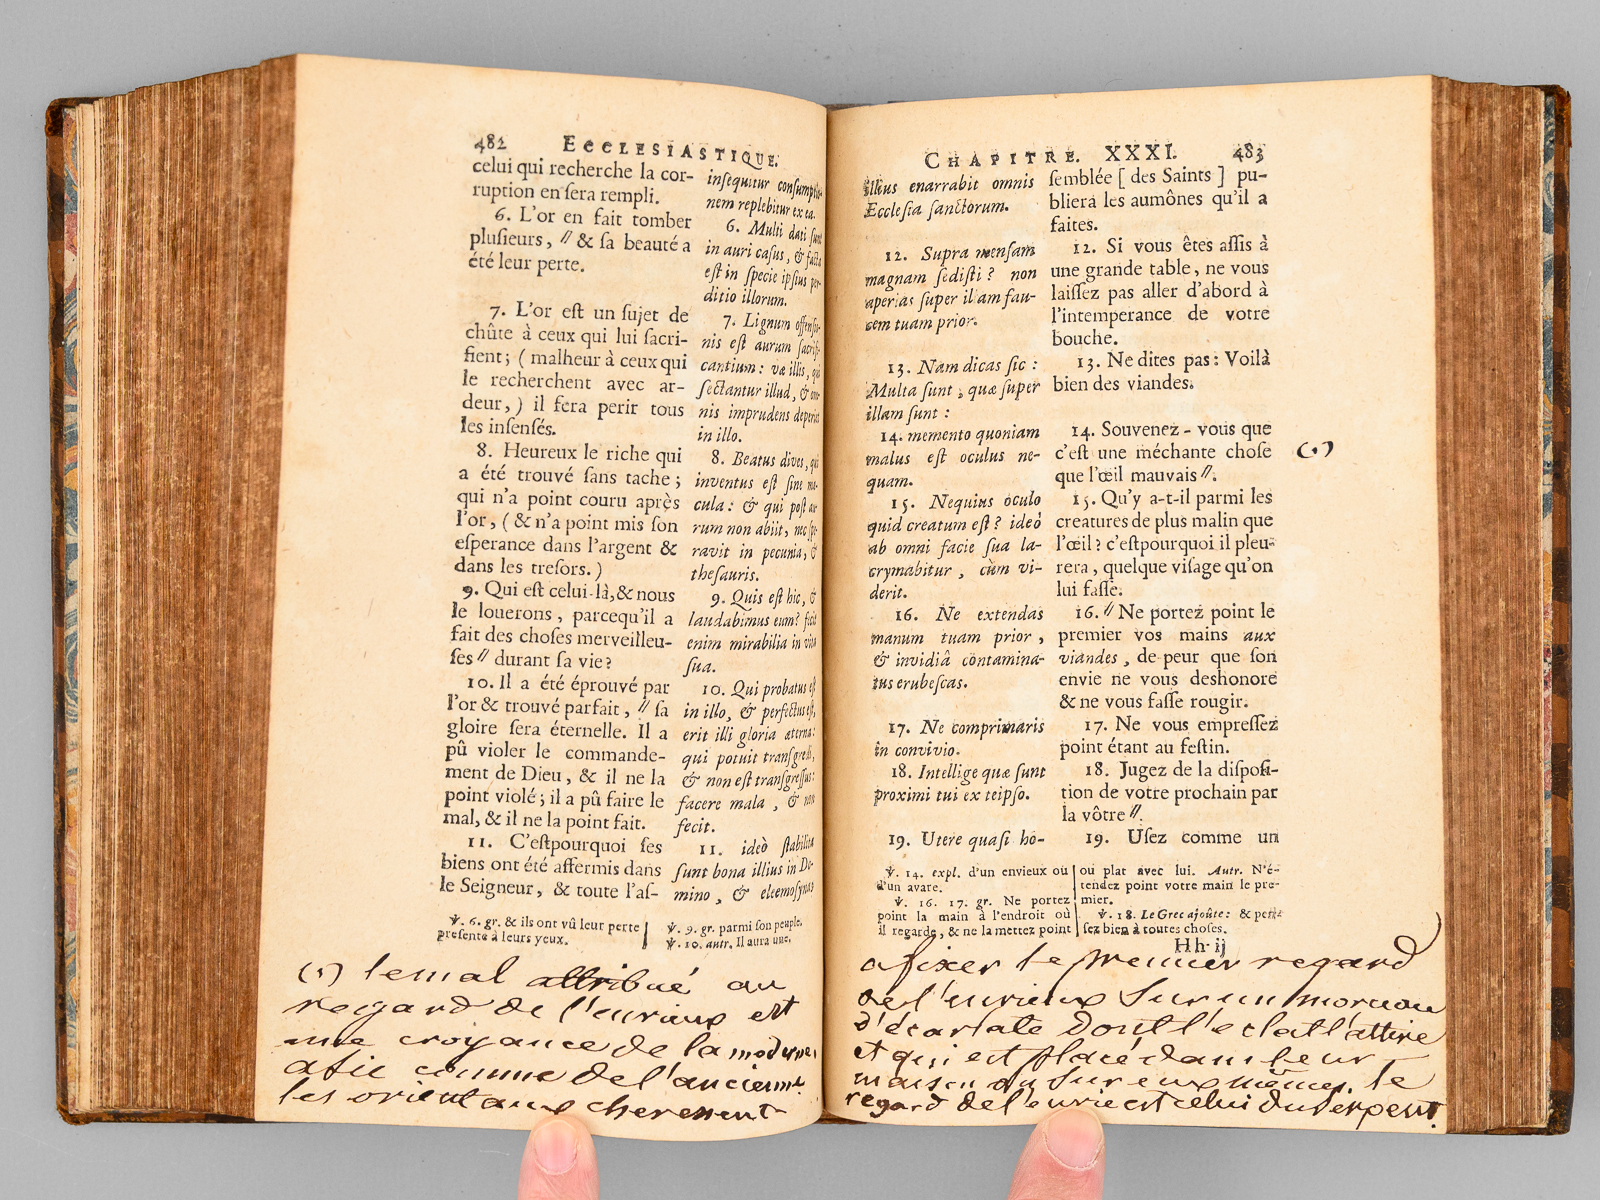 482 ECCLESIASTIQUE.
celui qui recherche la cor-
ruption en ſera rempli.
6. L'or en fait tomber
pluſieurs, // & ſa beauté a
été leur perte.
7. L'or eſt un ſujet de
chûte à ceux qui lui ſacri-
fient; ( malheur à ceux qui
le recherchent avec ar-
deur, ) il fera perir tous
les inſenſés.
8. Heureux le riche qui
a été trouvé ſans tache;
qui n'a point couru après
l'or, ( & n'a point mis ſon
eſperance dans l'argent &
dans les treſors. )
9. Qui eſt celui-là, & nous
le louerons, parcequ'il a
fait des choſes merveilleu-
ſes // durant ſa vie?
10. Il a été éprouvé par
l'or & trouvé parfait, // ſa
gloire ſera éternelle. Il a
pû violer le commande-
ment de Dieu, & il ne l'a
point violé; il a pû faire le
mal, & il ne la point fait.
11. C'eſtpourquoi ſes
biens ont été affermis dans
le Seigneur, & toute l'aſ-
inſequitur conſumptio-
nem replebitur ex ea.
6. Multi dati ſunt
in auri caſus, & facta
eſt in ſpecie ipſius per-
ditio illorum.
7. Lignum offenſio-
nis eſt aurum ſacrifi-
cantium: væ illis, qui
ſectantur illud, & om-
nis imprudens deperiet
in illo.
8. Beatus dives, qui
inventus eſt ſine ma-
cula: & qui poſt au-
rum non abiit, nec ſpe-
ravit in pecunia, &
theſauris.
9. Quis eſt hic, &
laudabimus eum? fecit
enim mirabilia in vita
ſua.
10. Qui probatus eſt
in illo, & perfectus eſt,
erit illi gloria æterna:
qui potuit tranſgredi,
& non eſt tranſgreſſus:
facere mala, & non
fecit.
11. ideò ſtabilita
ſunt bona illius in Do-
mino, & eleemoſynas
℣. 6. gr. & ils ont vû leur perte
preſente à leurs yeux.
℣. 9. gr. parmi ſon peuple.
℣. 10. autr. Il aura une.
(1) le mal attribué au
regard de l'envieux est
une croyance de la moderne
asie comme de l'ancienne.
les orientaux cherchent
CHAPITRE. XXXI. 483
illius enarrabit omnis
Eccleſia ſanctorum.
12. Supra menſam
magnam ſediſti? non
aperias ſuper illam fau-
cem tuam prior.
13. Nam dicas ſic:
Multa ſunt, quæ ſuper
illam ſunt:
14. memento quoniam
malus eſt oculus ne-
quam.
15. Nequius oculo
quid creatum eſt? ideò
ab omni facie ſua la-
crymabitur, cùm vi-
derit.
16. Ne extendas
manum tuam prior,
& invidiâ contamina-
tus erubeſcas.
17. Ne comprimaris
in convivio.
18. Intellige quæ ſunt
proximi tui ex teipſo.
19. Utere quaſi ho-
ſemblée [ des Saints ] pu-
bliera les aumônes qu'il a
faites.
12. Si vous êtes aſſis à
une grande table, ne vous
laiſſez pas aller d'abord à
l'intemperance de votre
bouche.
13. Ne dites pas: Voilà
bien des viandes.
14. Souvenez-vous que
c'eſt une méchante choſe (1)
que l'œil mauvais //.
15. Qu'y a-t-il parmi les
creatures de plus malin que
l'œil? c'eſtpourquoi il pleu-
rera, quelque viſage qu'on
lui faſſe.
16. // Ne portez point le
premier vos mains aux
viandes, de peur que ſon
envie ne vous deshonore
& ne vous faſſe rougir.
17. Ne vous empreſſez
point étant au feſtin.
18. Jugez de la diſpoſi-
tion de votre prochain par
la vôtre //.
19. Uſez comme un
℣. 14. expl. d'un envieux ou
d'un avare.
℣. 16. 17. gr. Ne portez
point la main à l'endroit où
il regarde, & ne la mettez point
au plat avec lui. Autr. N'é-
tendez point votre main le pre-
mier.
℣. 18. Le Grec ajoûte: & penſez
bien à toutes choſes.
Hh ij
a fixer le premier regard
de l'envieux sur un morceau
d'écarlate dont l'eclat l'attire
et qui est placé dans leur
maison ou sur eux mêmes. le
regard de l'envie est celui du serpent.